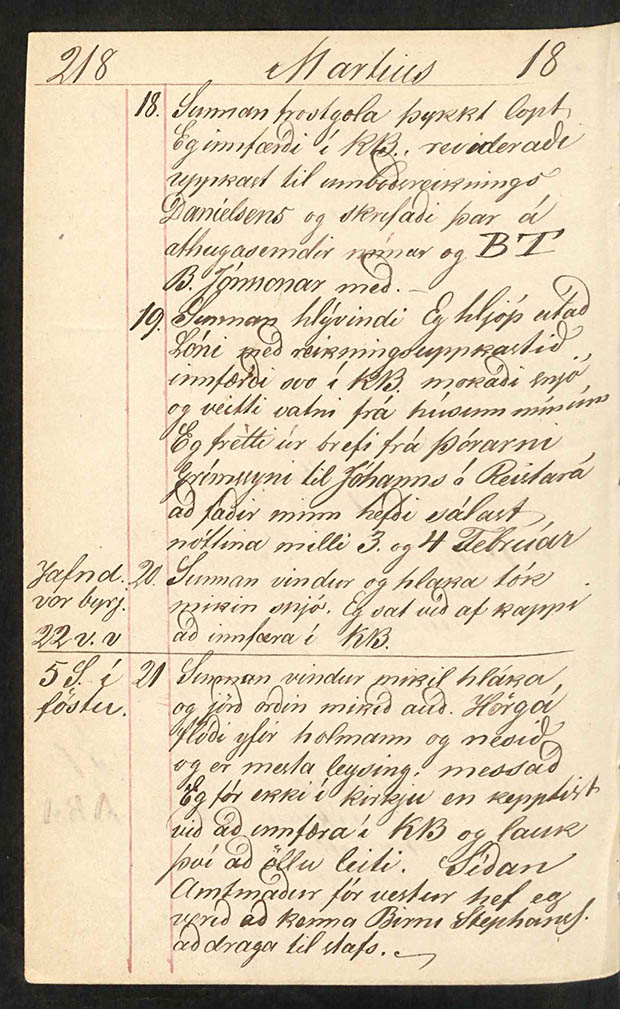 218 Martius 18
18. Sunnan frostgola þykkt lopt,
Eg innfærði í KB., reideraði
uppkast til umboðsreiknings
Daníelsens og skrifaði þar á
athugasemdir mínar og BT
B. Jónssonar með. —
19. Sunnan hlývindi Eg hljóp út að
Lóni með reikningsuppkastið,
innfærði svo í KB. mokaði snjó
og veitti vatni frá húsum mínum
Eg frétti úr brefi frá Þórarni
Grímssyni til Jóhanns á Reistará
að faðir minn hefði sálast
nóttina milli 3. og 4 Februar
Jafnd. 20. Sunnan vindur og hlaka tók
vor byrj. mikin snjó. Eg sat við af kappi
22 v. v að innfæra í KB.
5 S. í 21 Sunnan vindur mikil hláka,
föstu. og jörð orðin mikið auð. Hörgá
flóði yfir holmann og nesið
og er mesta leysing. messað
Eg fór ekki í kirkju en kepptist
við að innfæra í KB og lauk
því að öllu leiti. Síðan
Amtmaður fór vestur hef eg
verið að kenna Birni Stephanss.
að draga til stafs. —